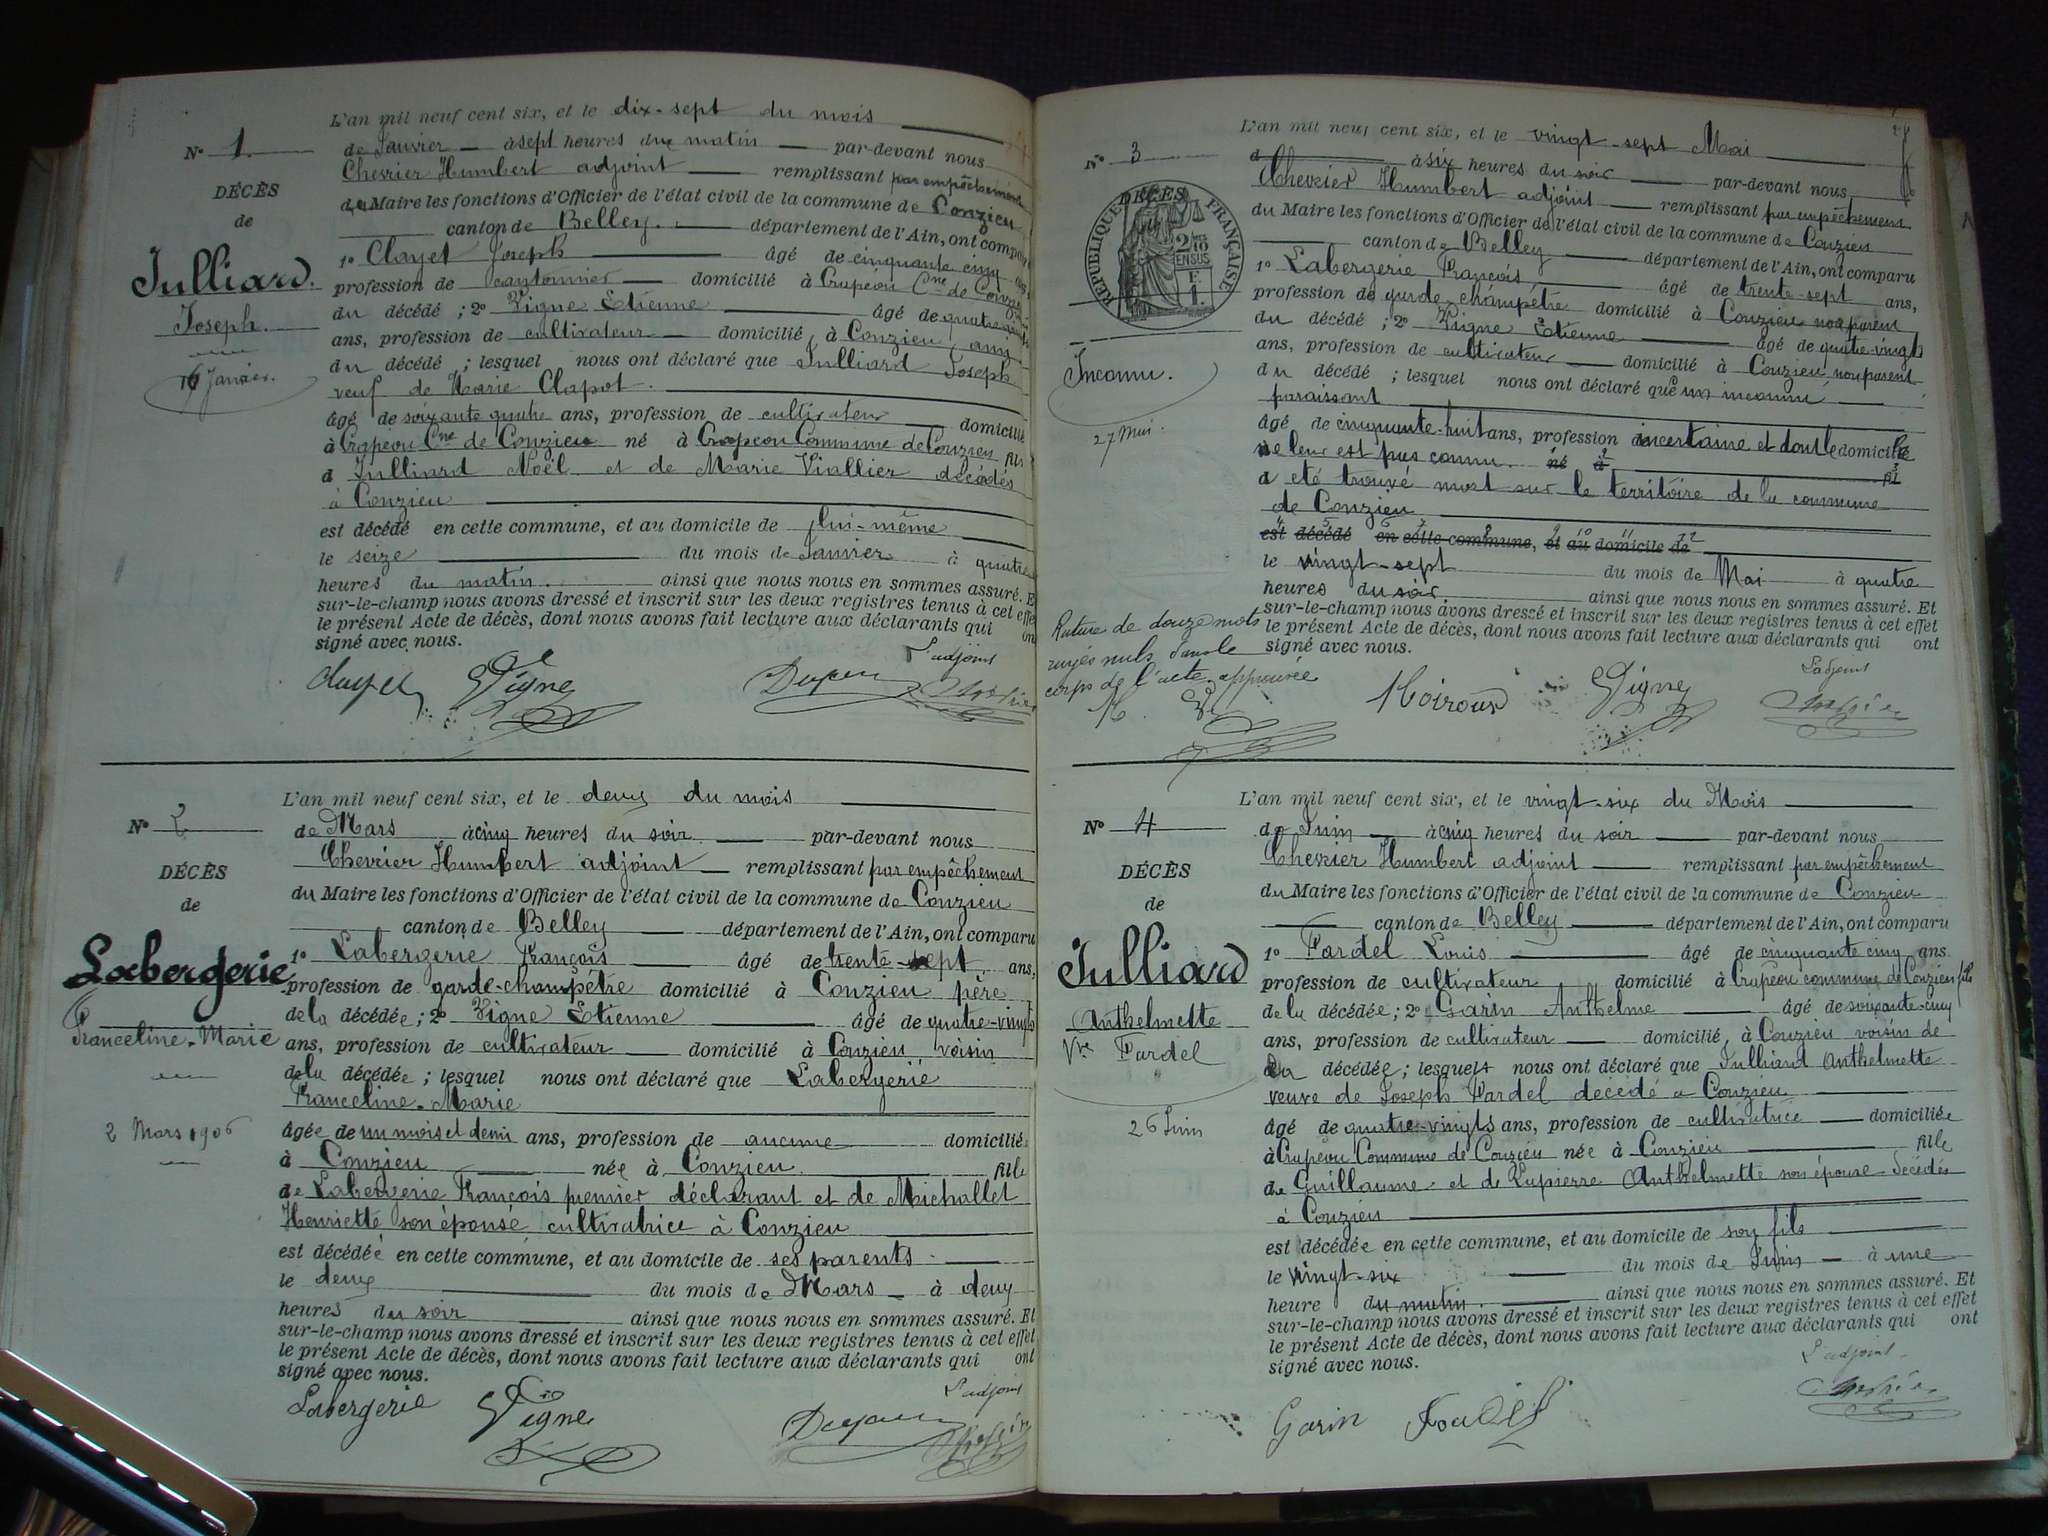 N° 1.
DÉCÈS
de
Julliard.
Joseph.
16 Janvier.
L'an mil neuf cent six, et le dix-sept du mois
de Janvier à sept heures du matin par-devant nous
Chevrier Humbert adjoint remplissant par empêchement
du Maire les fonctions d'Officier de l'état civil de la commune de Conzieu
canton de Belley. département de l'Ain, ont comparu
1° Clayet Joseph âgé de cinquante cinq ans,
profession de cantonnier domicilié à Crapéou Cne de Conzieu
du décédé ; 2° Vigne Etienne âgé de quatre-vingts
ans, profession de cultivateur domicilié à Conzieu ami
du décédé ; lesquel nous ont déclaré que Julliard Joseph
veuf de Marie Clapot.
âgé de soixante quatre ans, profession de cultivateur domicilié
à Crapeou Cne de Conzieu né à Crapeou Commune de Conzieu fils
d Julliard Noël et de Marie Viallier décédés
à Conzieu
est décédé en cette commune, et au domicile de lui-même
le seize du mois de Janvier à quatre
heures du matin. ainsi que nous nous en sommes assuré. Et
sur-le-champ nous avons dressé et inscrit sur les deux registres tenus à cet effet
le présent Acte de décès, dont nous avons fait lecture aux déclarants qui ont
signé avec nous.
L'adjoint
Clayet Vigne
N° 2
DÉCÈS
de
Labergerie
Franceline-Marie
2 Mars 1906
L'an mil neuf cent six, et le deux du mois
de Mars à cinq heures du soir par-devant nous
Chevrier Humbert adjoint remplissant par empêchement
du Maire les fonctions d'Officier de l'état civil de la commune de Conzieu
canton de Belley département de l'Ain, ont comparu
1° Labergerie François âgé de trente-sept ans,
profession de garde-champêtre domicilié à Conzieu père
de la décédée ; 2° Vigne Etienne âgé de quatre-vingts
ans, profession de cultivateur domicilié à Conzieu voisin
de la décédée ; lesquel nous ont déclaré que Labergerie
Franceline-Marie
âgée de un mois et demi ans, profession de aucune domiciliée
à Conzieu née à Conzieu. fille
de Labergerie François premier déclarant et de Michallet
Henriette son épouse cultivatrice à Conzieu
est décédée en cette commune, et au domicile de ses parents
le deux du mois de Mars à deux
heures du soir ainsi que nous nous en sommes assuré. Et
sur-le-champ nous avons dressé et inscrit sur les deux registres tenus à cet effet
le présent Acte de décès, dont nous avons fait lecture aux déclarants qui ont
signé avec nous.
L'adjoint
Labergerie Vigne
N° 3
DÉCÈS
RÉPUBLIQUE FRANÇAISE
2/10 EN SUS
F. 1.
Inconnu.
27 Mai.
L'an mil neuf cent six, et le vingt-sept Mai
d à six heures du soir par-devant nous
Chevrier Humbert adjoint remplissant par empêchement
du Maire les fonctions d'Officier de l'état civil de la commune de Conzieu
canton de Belley département de l'Ain, ont comparu
1° Labergerie François âgé de trente-sept ans,
profession de garde-champêtre domicilié à Conzieu non parent
du décédé ; 2° Vigne Etienne âgé de quatre-vingts
ans, profession de cultivateur domicilié à Conzieu non parent
du décédé ; lesquel nous ont déclaré que un inconnu
paraissant
âgé de cinquante-huit ans, profession incertaine et dont le domicile
ne leur est pas connu. né à
a été trouvé mort sur le territoire de la commune
de Conzieu
est décédé en cette commune, et au domicile de
le vingt-sept du mois de Mai à quatre
heures du soir. ainsi que nous nous en sommes assuré. Et
sur-le-champ nous avons dressé et inscrit sur les deux registres tenus à cet effet
le présent Acte de décès, dont nous avons fait lecture aux déclarants qui ont
signé avec nous.
Rature de douze mots
rayés nuls dans le
corps de l'acte approuvée
L'adjoint
Moiroud Vigne
N° 4
DÉCÈS
de
Julliard
Anthelmette
Vve Fardel
26 Juin
L'an mil neuf cent six, et le vingt-six du Mois
de Juin à cinq heures du soir par-devant nous
Chevrier Humbert adjoint remplissant par empêchement
du Maire les fonctions d'Officier de l'état civil de la commune de Conzieu
canton de Belley département de l'Ain, ont comparu
1° Fardel Louis âgé de cinquante cinq ans
profession de cultivateur domicilié à Crapéou commune de Conzieu fils
de la décédée ; 2° Garin Anthelme âgé de soixante-cinq
ans, profession de cultivateur domicilié à Conzieu voisin de
la décédée ; lesquels nous ont déclaré que Julliard Anthelmette
veuve de Joseph Fardel décédé à Conzieu
âgé de quatre-vingts ans, profession de cultivatrice domiciliée
à Crapéou Commune de Conzieu née à Conzieu fille
de Guillaume et de Lapierre Anthelmette son épouse décédés
à Conzieu
est décédée en cette commune, et au domicile de son fils
le vingt-six du mois de Juin à une
heure du matin. ainsi que nous nous en sommes assuré. Et
sur-le-champ nous avons dressé et inscrit sur les deux registres tenus à cet effet
le présent Acte de décès, dont nous avons fait lecture aux déclarants qui ont
signé avec nous.
L'adjoint
Garin Fardel